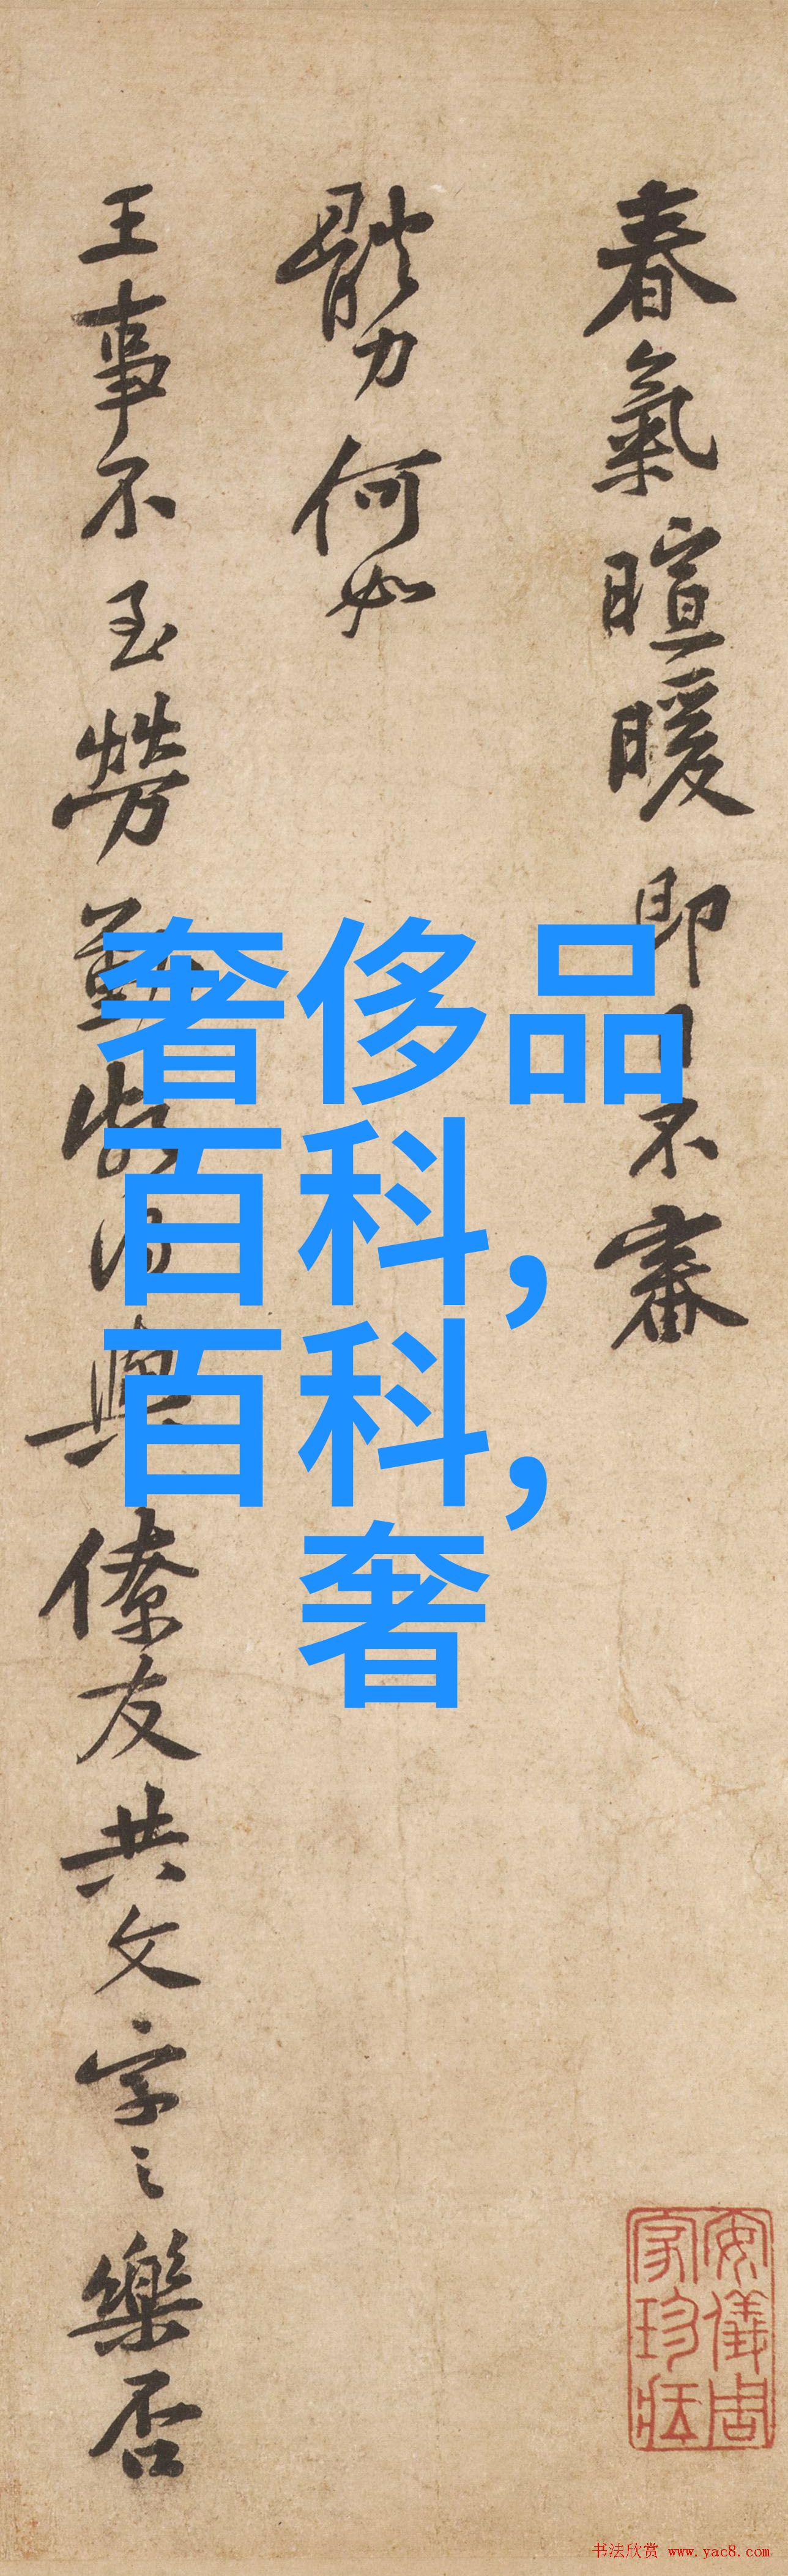 春氣暄暖即日不審
體力何如
王事不至勞勤
與僚友共文字之樂否
奢侈品
百科，
百科，
奢
安儀周家珍藏
书法欣赏 www.yac8.com